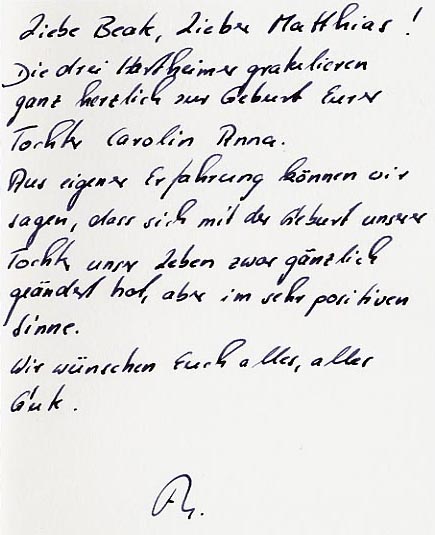 Liebe Beate, Lieber Matthias!
Die drei Hartheimer gratulieren
ganz herzlich zur Geburt Eurer
Tochter Carolin Anna.
Aus eigener Erfahrung können wir
sagen, dass sich mit der Geburt unserer
Tochter unser Leben zwar gänzlich
geändert hat, aber im sehr positiven
Sinne.
Wir wünschen Euch alles, alles
Gute.